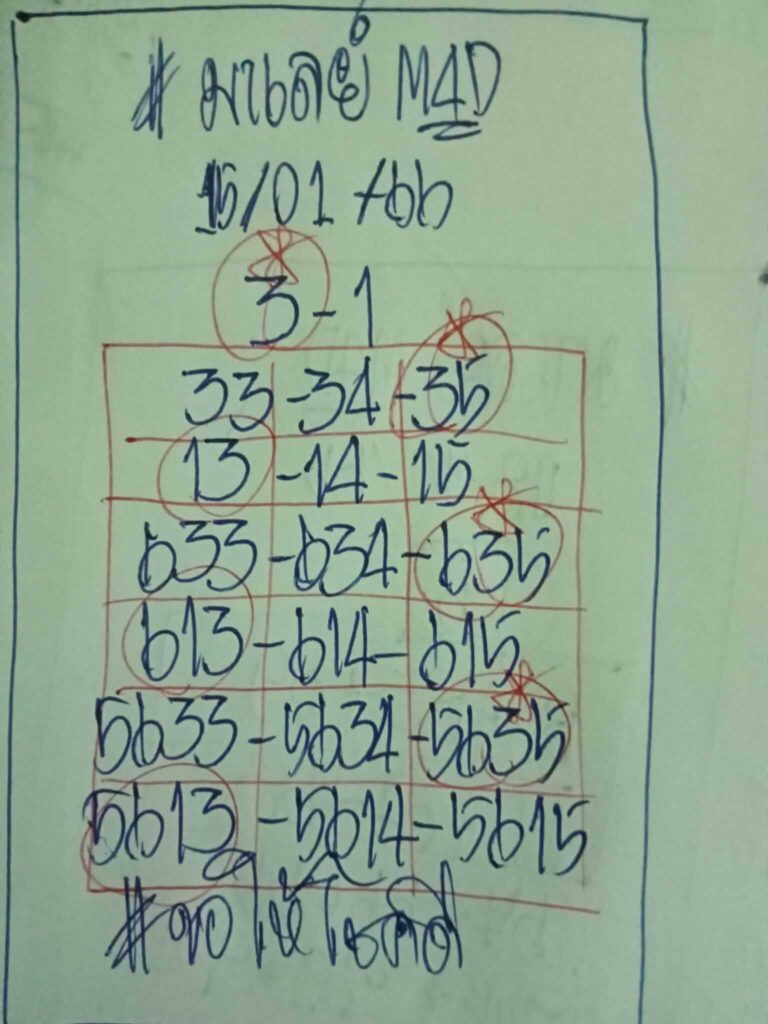 # มาเลย์ M4D
15/01/66
3-1
33-34-35
13-14-15
633-634-635
613-614-615
5633-5634-5635
5613-5614-5615
#ขอให้โชคดี